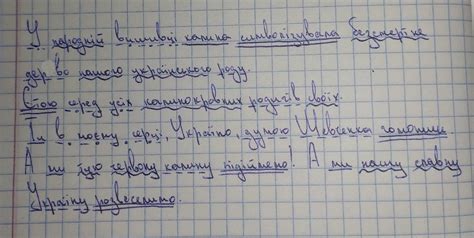 У народній вишивці калина символізувала безсмертне
дерево нашого українського роду.
Стою серед усіх калинокровних родичів своїх.
Ти в моєму серці, Україно, думою Шевченка гомониш.
А ми тую червону калину підіймемо! А ми нашу славну
Україну розвеселимо.